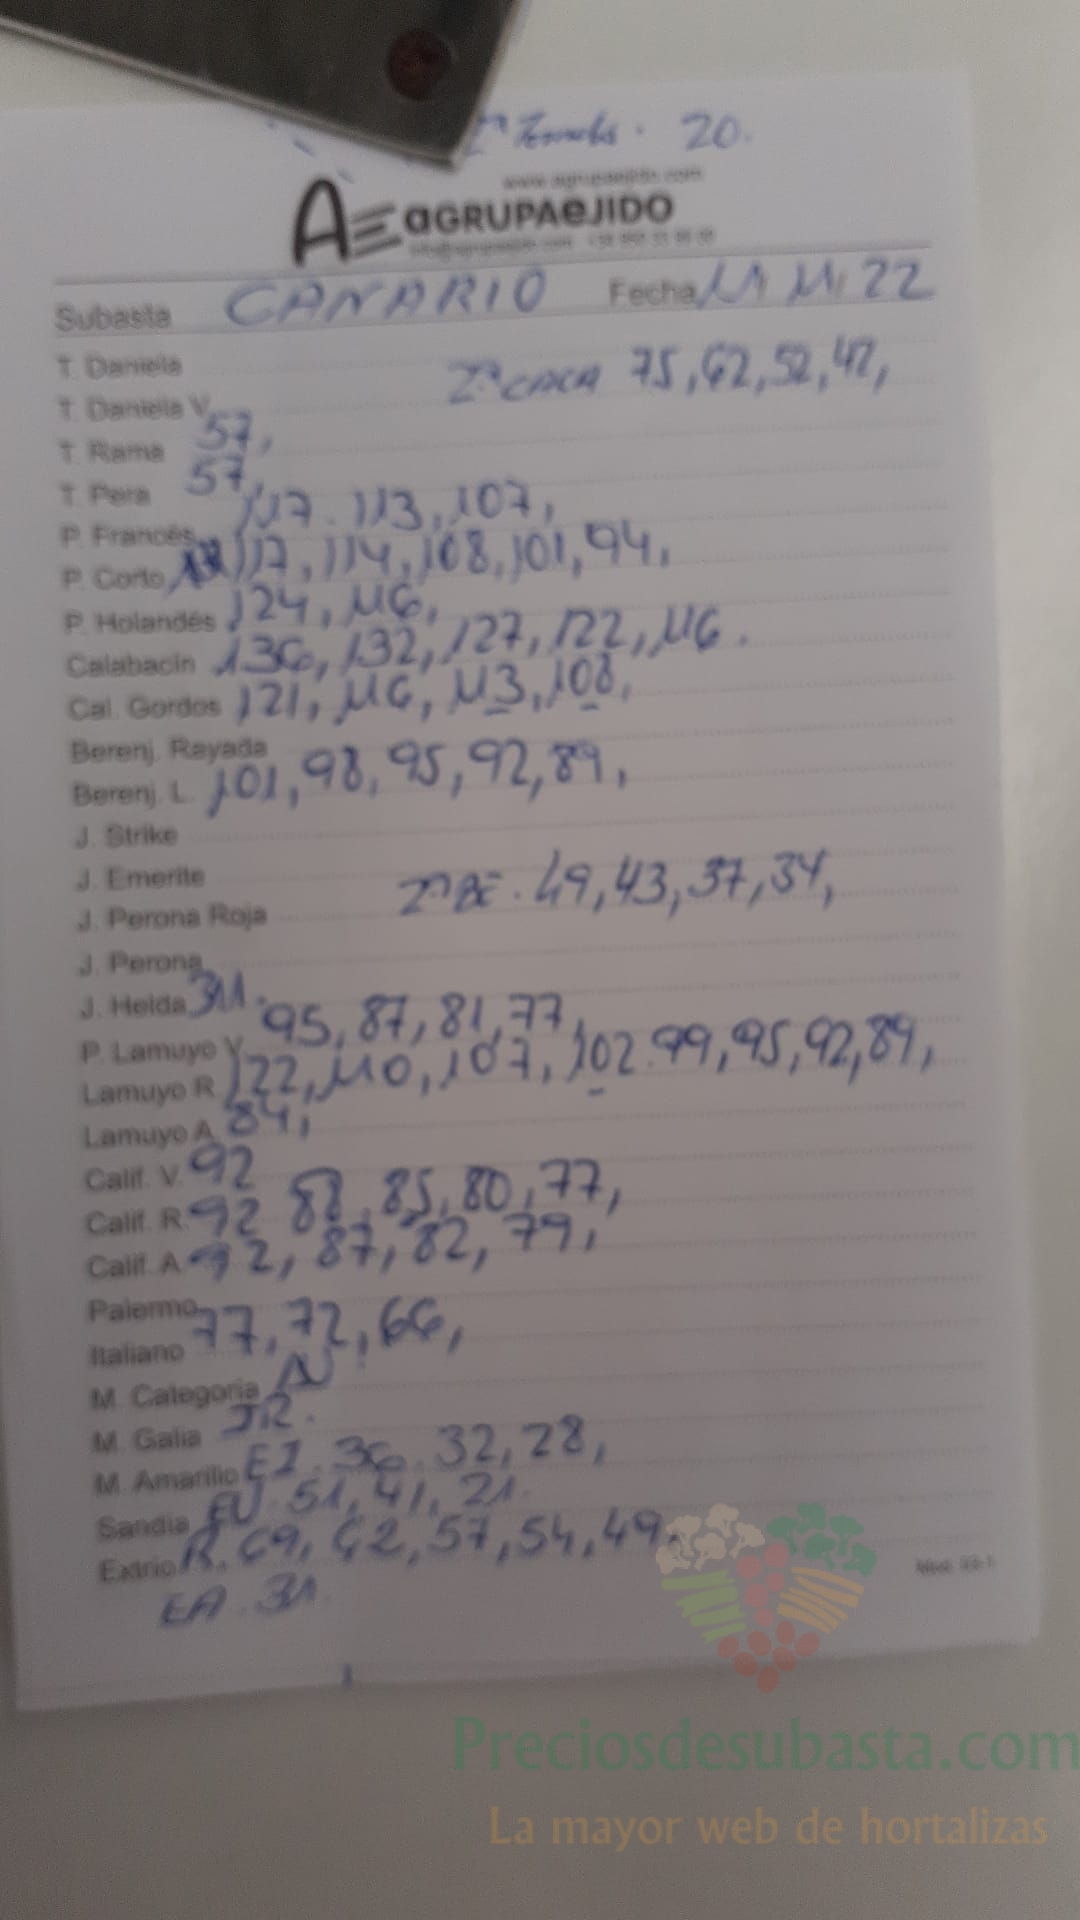 20.
www.agrupaejido.com
AGRUPAEJIDO
Subasta CANARIO Fecha 11, 11, 22
T. Daniela
2ª CACA 75, 62, 52, 42,
T. Daniela V.
T. Rama 57,
T. Pera 57,
P. Francés 117. 113, 107,
P. Corto 117, 114, 108, 101, 94,
P. Holandés 124, 116,
Calabacín 136, 132, 127, 122, 116.
Cal. Gordos 121, 116, 113, 108,
Berenj. Rayada
Berenj. L. 101, 98, 95, 92, 89,
J. Strike
J. Emerite
2ª BE. 49, 43, 37, 34,
J. Perona Roja
J. Perona
J. Helda 311.
P. Lamuyo V. 95, 87, 81, 77,
Lamuyo R. 122, 110, 107, 102. 99, 95, 92, 89,
Lamuyo A. 84,
Calif. V. 92
Calif. R. 92 88, 85, 80, 77,
Calif. A 92, 87, 82, 79,
Palermo
Italiano 77, 72, 66,
M. Categoria
M. Galia JR.
M. Amarillo EI. 36. 32, 28,
Sandía EU. 51, 41, 21.
Extrio R. 69, 62, 57, 54, 49,
EA. 31.
Preciosdesubasta.com
La mayor web de hortalizas